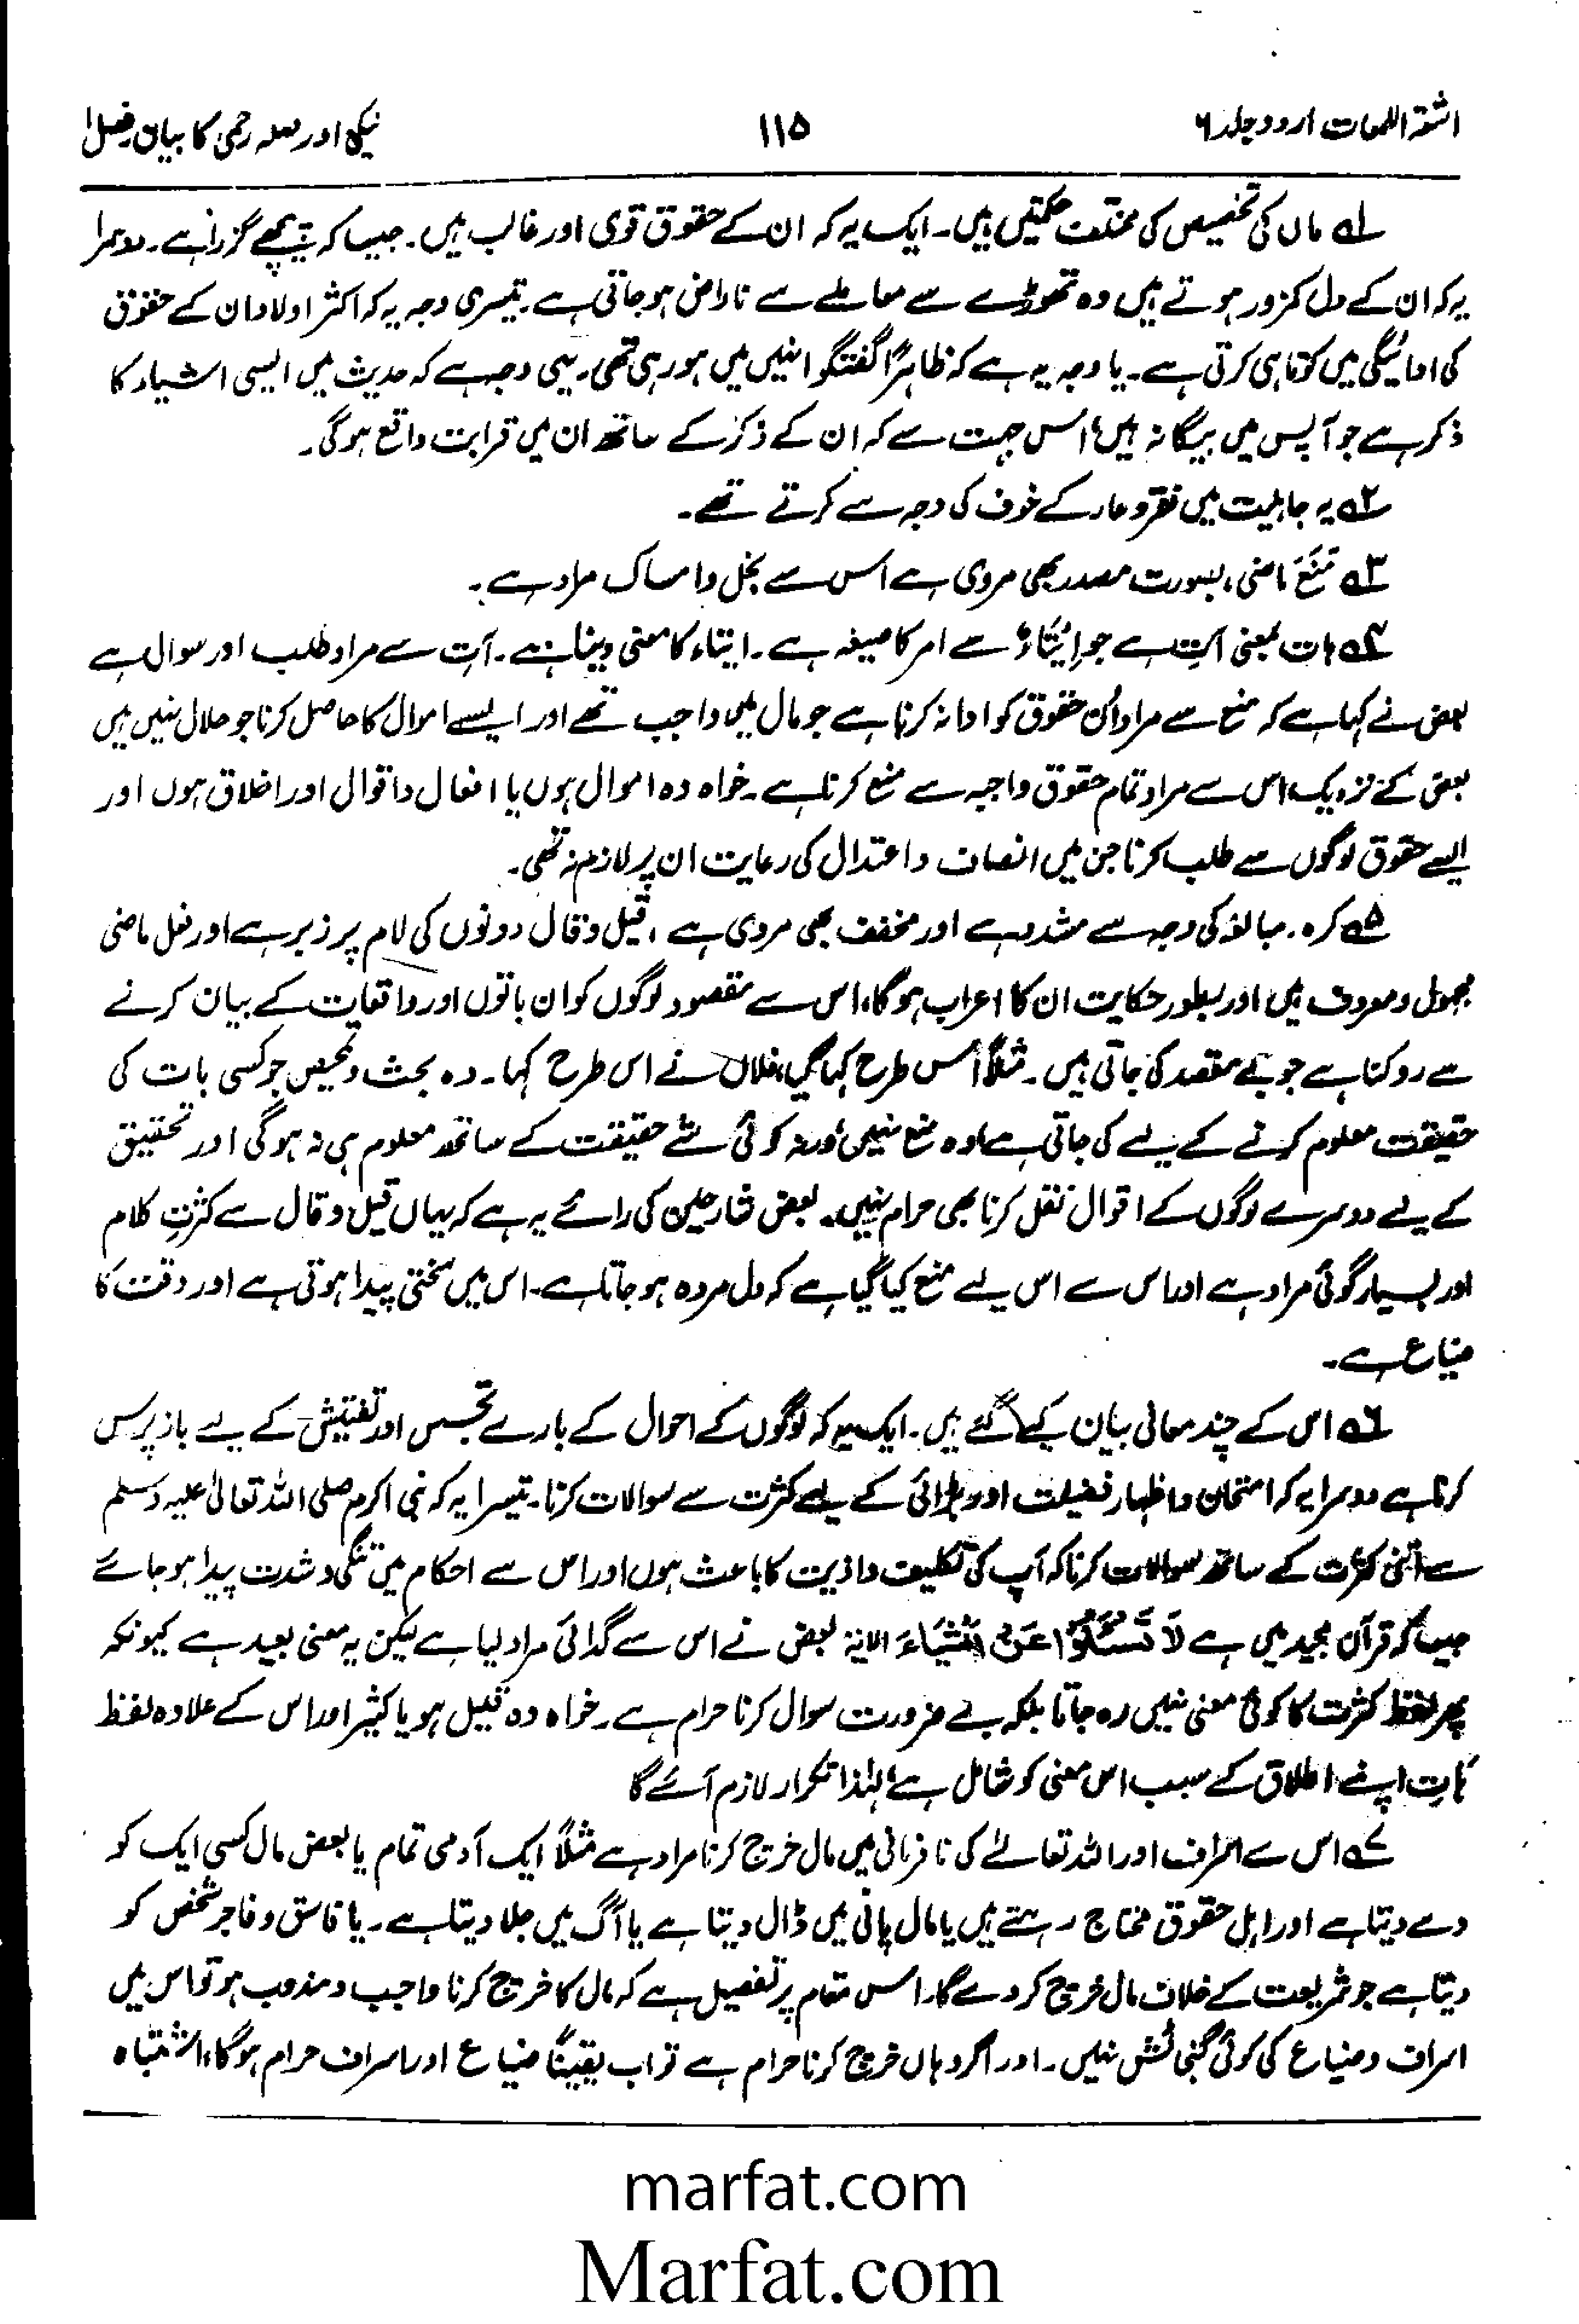 اشعۃ اللمعات اردو جلد ۶
۱۱۵
نیکی اور صلہ رحمی کا بیان فصل ۱
۱ ماں کی تخصیص کی مختلف حکمتیں ہیں۔ ایک یہ کہ ان کے حقوق قوی اور غالب ہیں۔ جیسا کہ پیچھے گزرا ہے۔ دوسرا
یہ کہ ان کے دل کمزور ہوتے ہیں وہ تھوڑے سے معاملے سے ناراض ہو جاتی ہے۔ تیسری وجہ یہ کہ اکثر اولاد ان کے حقوق
کی ادائیگی میں کوتاہی کرتی ہے۔ یا وجہ یہ ہے کہ ظاہراً گفتگو انہیں میں ہو رہی تھی۔ یہی وجہ ہے کہ حدیث میں ایسی اشیاء کا
ذکر ہے جو آپس میں بیگانہ ہیں، اس جہت سے کہ ان کے ذکر کے ساتھ ان میں قرابت واقع ہو گی۔
۲ یہ جاہلیت میں فقر و عار کے خوف کی وجہ سے کرتے تھے۔
۳ مَنَعَ ماضی، بصورت مصدر بھی مروی ہے اس سے بخل و امساک مراد ہے۔
۴ ہات بمعنی آتِ ہے جو اِیْتَاءٌ سے امر کا صیغہ ہے۔ ایتاء کا معنی دینا ہے۔ آت سے مراد طلب اور سوال ہے
بعض نے کہا ہے کہ منع سے مراد اُن حقوق کو ادا نہ کرنا ہے جو مال میں واجب تھے اور ایسے اموال کا حاصل کرنا جو حلال نہیں ہیں
بعض کے نزدیک اس سے مراد تمام حقوق واجبہ سے منع کرنا ہے۔ خواہ وہ اموال ہوں یا افعال و اقوال اور اخلاق ہوں اور
ایسے حقوق لوگوں سے طلب کرنا جن میں انصاف و اعتدال کی رعایت ان پر لازم نہ تھی۔
۵ کرہ۔ مبالغہ کی وجہ سے مشدد ہے اور مخفف بھی مروی ہے، قیل و قال دونوں کی لام پر زبر ہے اور فعل ماضی
مجہول و معروف ہیں اور بطور حکایت ان کا اعراب ہو گا، اس سے مقصود لوگوں کو ان باتوں اور واقعات کے بیان کرنے
سے روکنا ہے جو بے مقصد کی جاتی ہیں۔ مثلاً اس طرح کہا گیا، فلاں نے اس طرح کہا۔ وہ بحث و تمحیص جو کسی بات کی
حقیقت معلوم کرنے کے لیے کی جاتی ہے وہ منع نہیں ورنہ کوئی شئے حقیقت کے ساتھ معلوم ہی نہ ہو گی اور تحقیق
کے لیے دوسرے لوگوں کے اقوال نقل کرنا بھی حرام نہیں۔ بعض شارحین کی رائے یہ ہے کہ یہاں قیل و قال سے کثرتِ کلام
اور بسیار گوئی مراد ہے اور اس سے اس لیے منع کیا گیا ہے کہ دل مردہ ہو جاتا ہے۔ اس میں سختی پیدا ہوتی ہے اور وقت کا
ضیاع ہے۔
۶ اس کے چند معانی بیان کیے گئے ہیں۔ ایک یہ کہ لوگوں کے احوال کے بارے تجسس اور تفتیش کے لیے باز پرس
کرنا ہے دوسرا یہ کہ امتحان و اظہار فضیلت اور بڑائی کے لیے کثرت سے سوالات کرنا۔ تیسرا یہ کہ نبی اکرم صلی اللہ تعالیٰ علیہ وسلم
سے اتنی کثرت کے ساتھ سوالات کرنا کہ آپ کی تکلیف و اذیت کا باعث ہوں اور اس سے احکام میں تنگی و شدت پیدا ہو جائے
جیسا کہ قرآن مجید میں ہے لَا تَسْئَلُوْا عَنْ اَشْیَاءَ الایۃ بعض نے اس سے گدائی مراد لیا ہے لیکن یہ معنی بعید ہے کیونکہ
پھر لفظ کثرت کا کوئی معنی نہیں رہ جاتا بلکہ بے ضرورت سوال کرنا حرام ہے۔ خواہ وہ قلیل ہو یا کثیر اور اس کے علاوہ لفظ
ہات اپنے اطلاق کے سبب اس معنی کو شامل ہے، لہٰذا تکرار لازم آئے گا
۷ اس سے اسراف اور اللہ تعالےٰ کی نافرمانی میں مال خرچ کرنا مراد ہے مثلاً ایک آدمی تمام یا بعض مال کسی ایک کو
دے دیتا ہے اور اہل حقوق محتاج رہتے ہیں یا مال پانی میں ڈال دیتا ہے یا آگ میں جلا دیتا ہے۔ یا فاسق و فاجر شخص کو
دیتا ہے جو شریعت کے خلاف مال خرچ کر دے گا۔ اس مقام پر تفصیل ہے کہ مال کا خرچ کرنا واجب و مندوب ہو تو اس میں
اسراف و ضیاع کی کوئی گنجائش نہیں۔ اور اگر وہاں خرچ کرنا حرام ہے تو اب یقیناً ضیاع اور اسراف حرام ہو گا، اشتباہ
marfat.com
Marfat.com